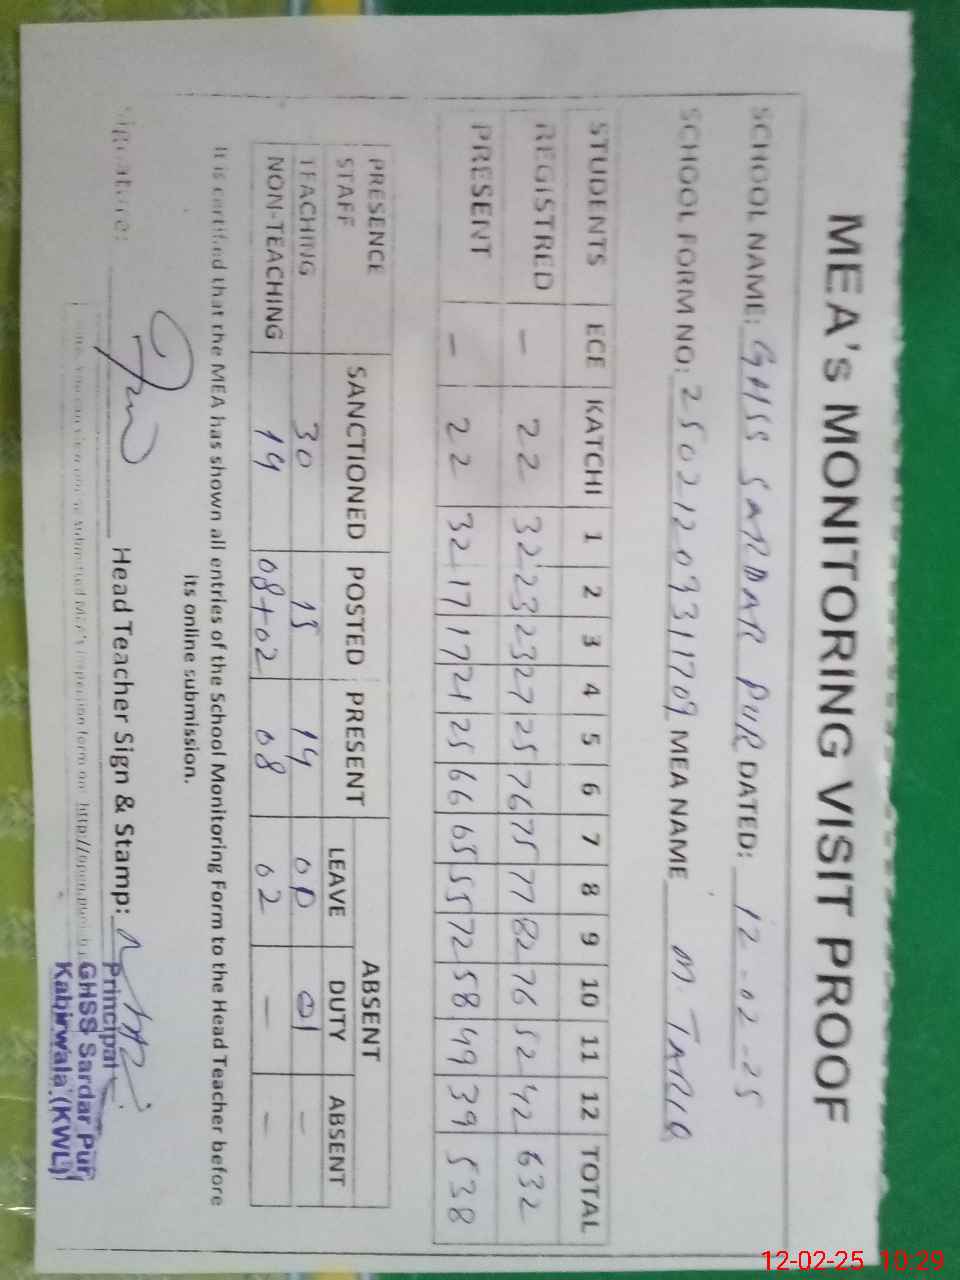 MEA's MONITORING VISIT PROOF
SCHOOL NAME: GHSS SARDAR PUR DATED: 12-02-25
SCHOOL FORM NO: 2502120931709 MEA NAME M. TARIQ
STUDENTS ECE KATCHI 1 2 3 4 5 6 7 8 9 10 11 12 TOTAL
REGISTRED - 22 32 23 23 27 25 76 75 77 82 76 52 42 632
PRESENT - 22 32 17 17 21 25 66 65 55 72 58 49 39 538
PRESENCE STAFF SANCTIONED POSTED PRESENT ABSENT
LEAVE DUTY ABSENT
TEACHING 30 15 14 00 01 -
NON-TEACHING 14 08+02 08 02 - -
It is certified that the MEA has shown all entries of the School Monitoring Form to the Head Teacher before
its online submission.
Signature: Head Teacher Sign & Stamp:
Principal
GHSS Sardar Pur
Kabirwala (KWL)
12-02-25 10:29